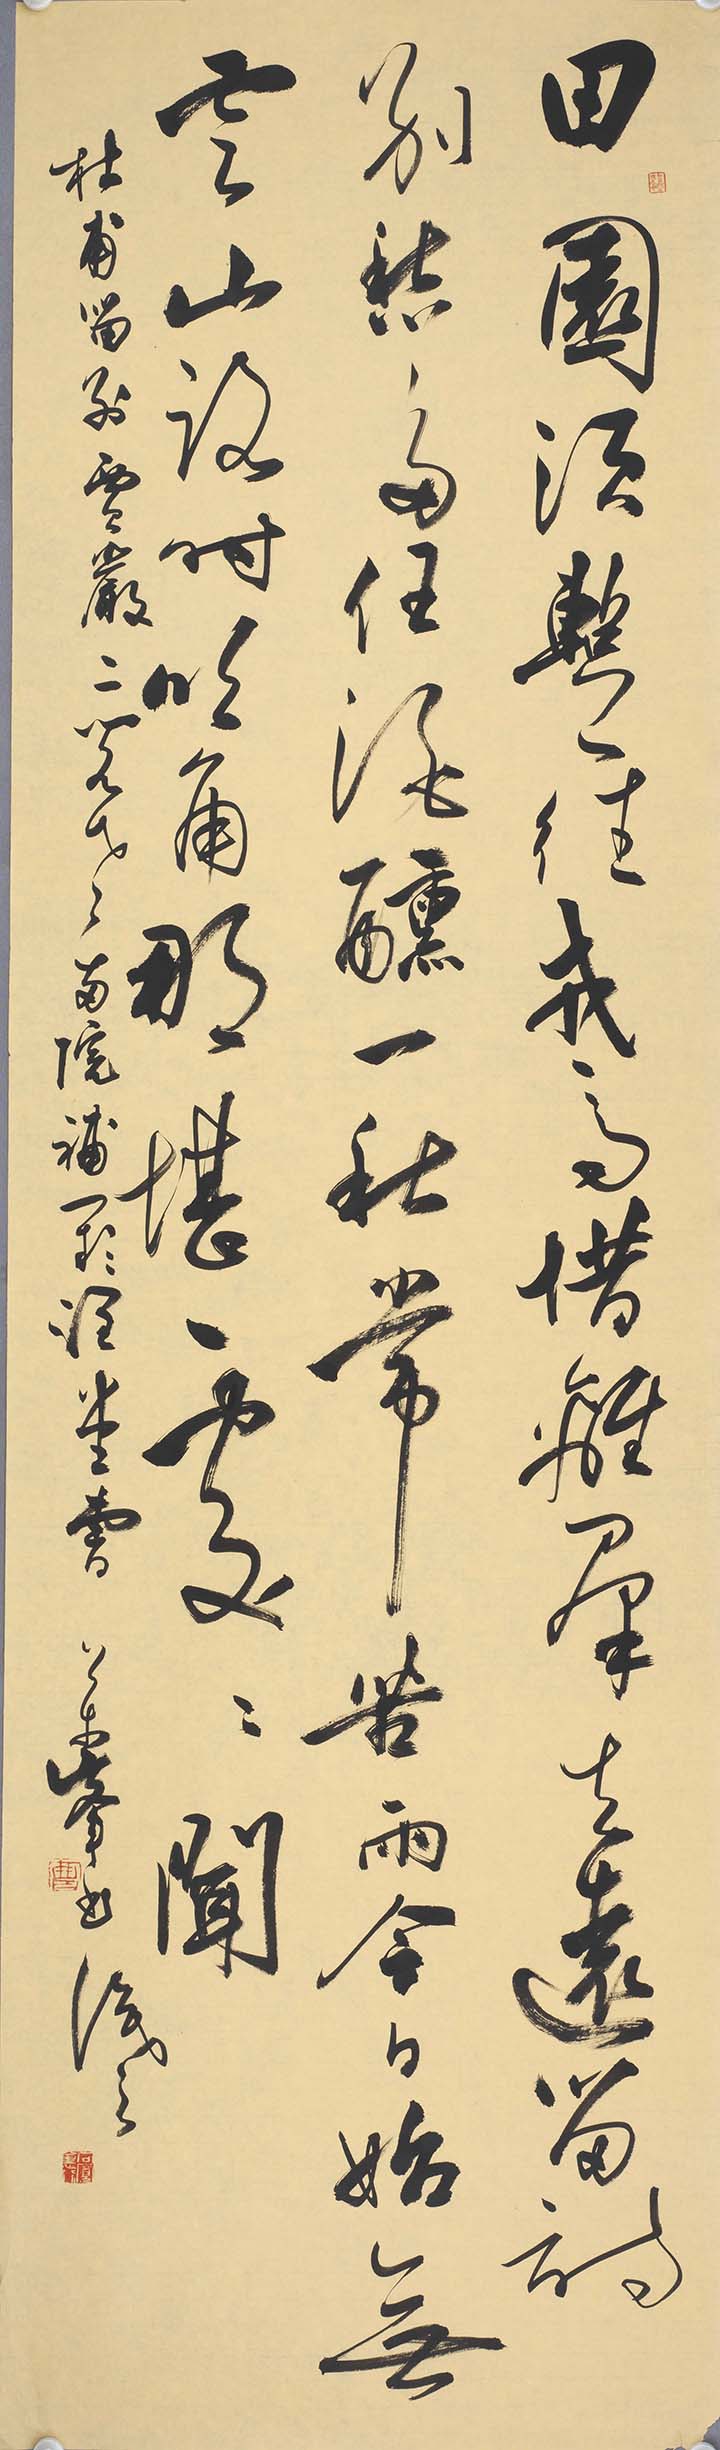 田園須暫往戎馬惜離羣去遠留詩
別愁多任酒醺一秋常苦雨今日始無
雲山路時吹角那堪處〻聞
杜甫留別賈嚴二閣老兩院補